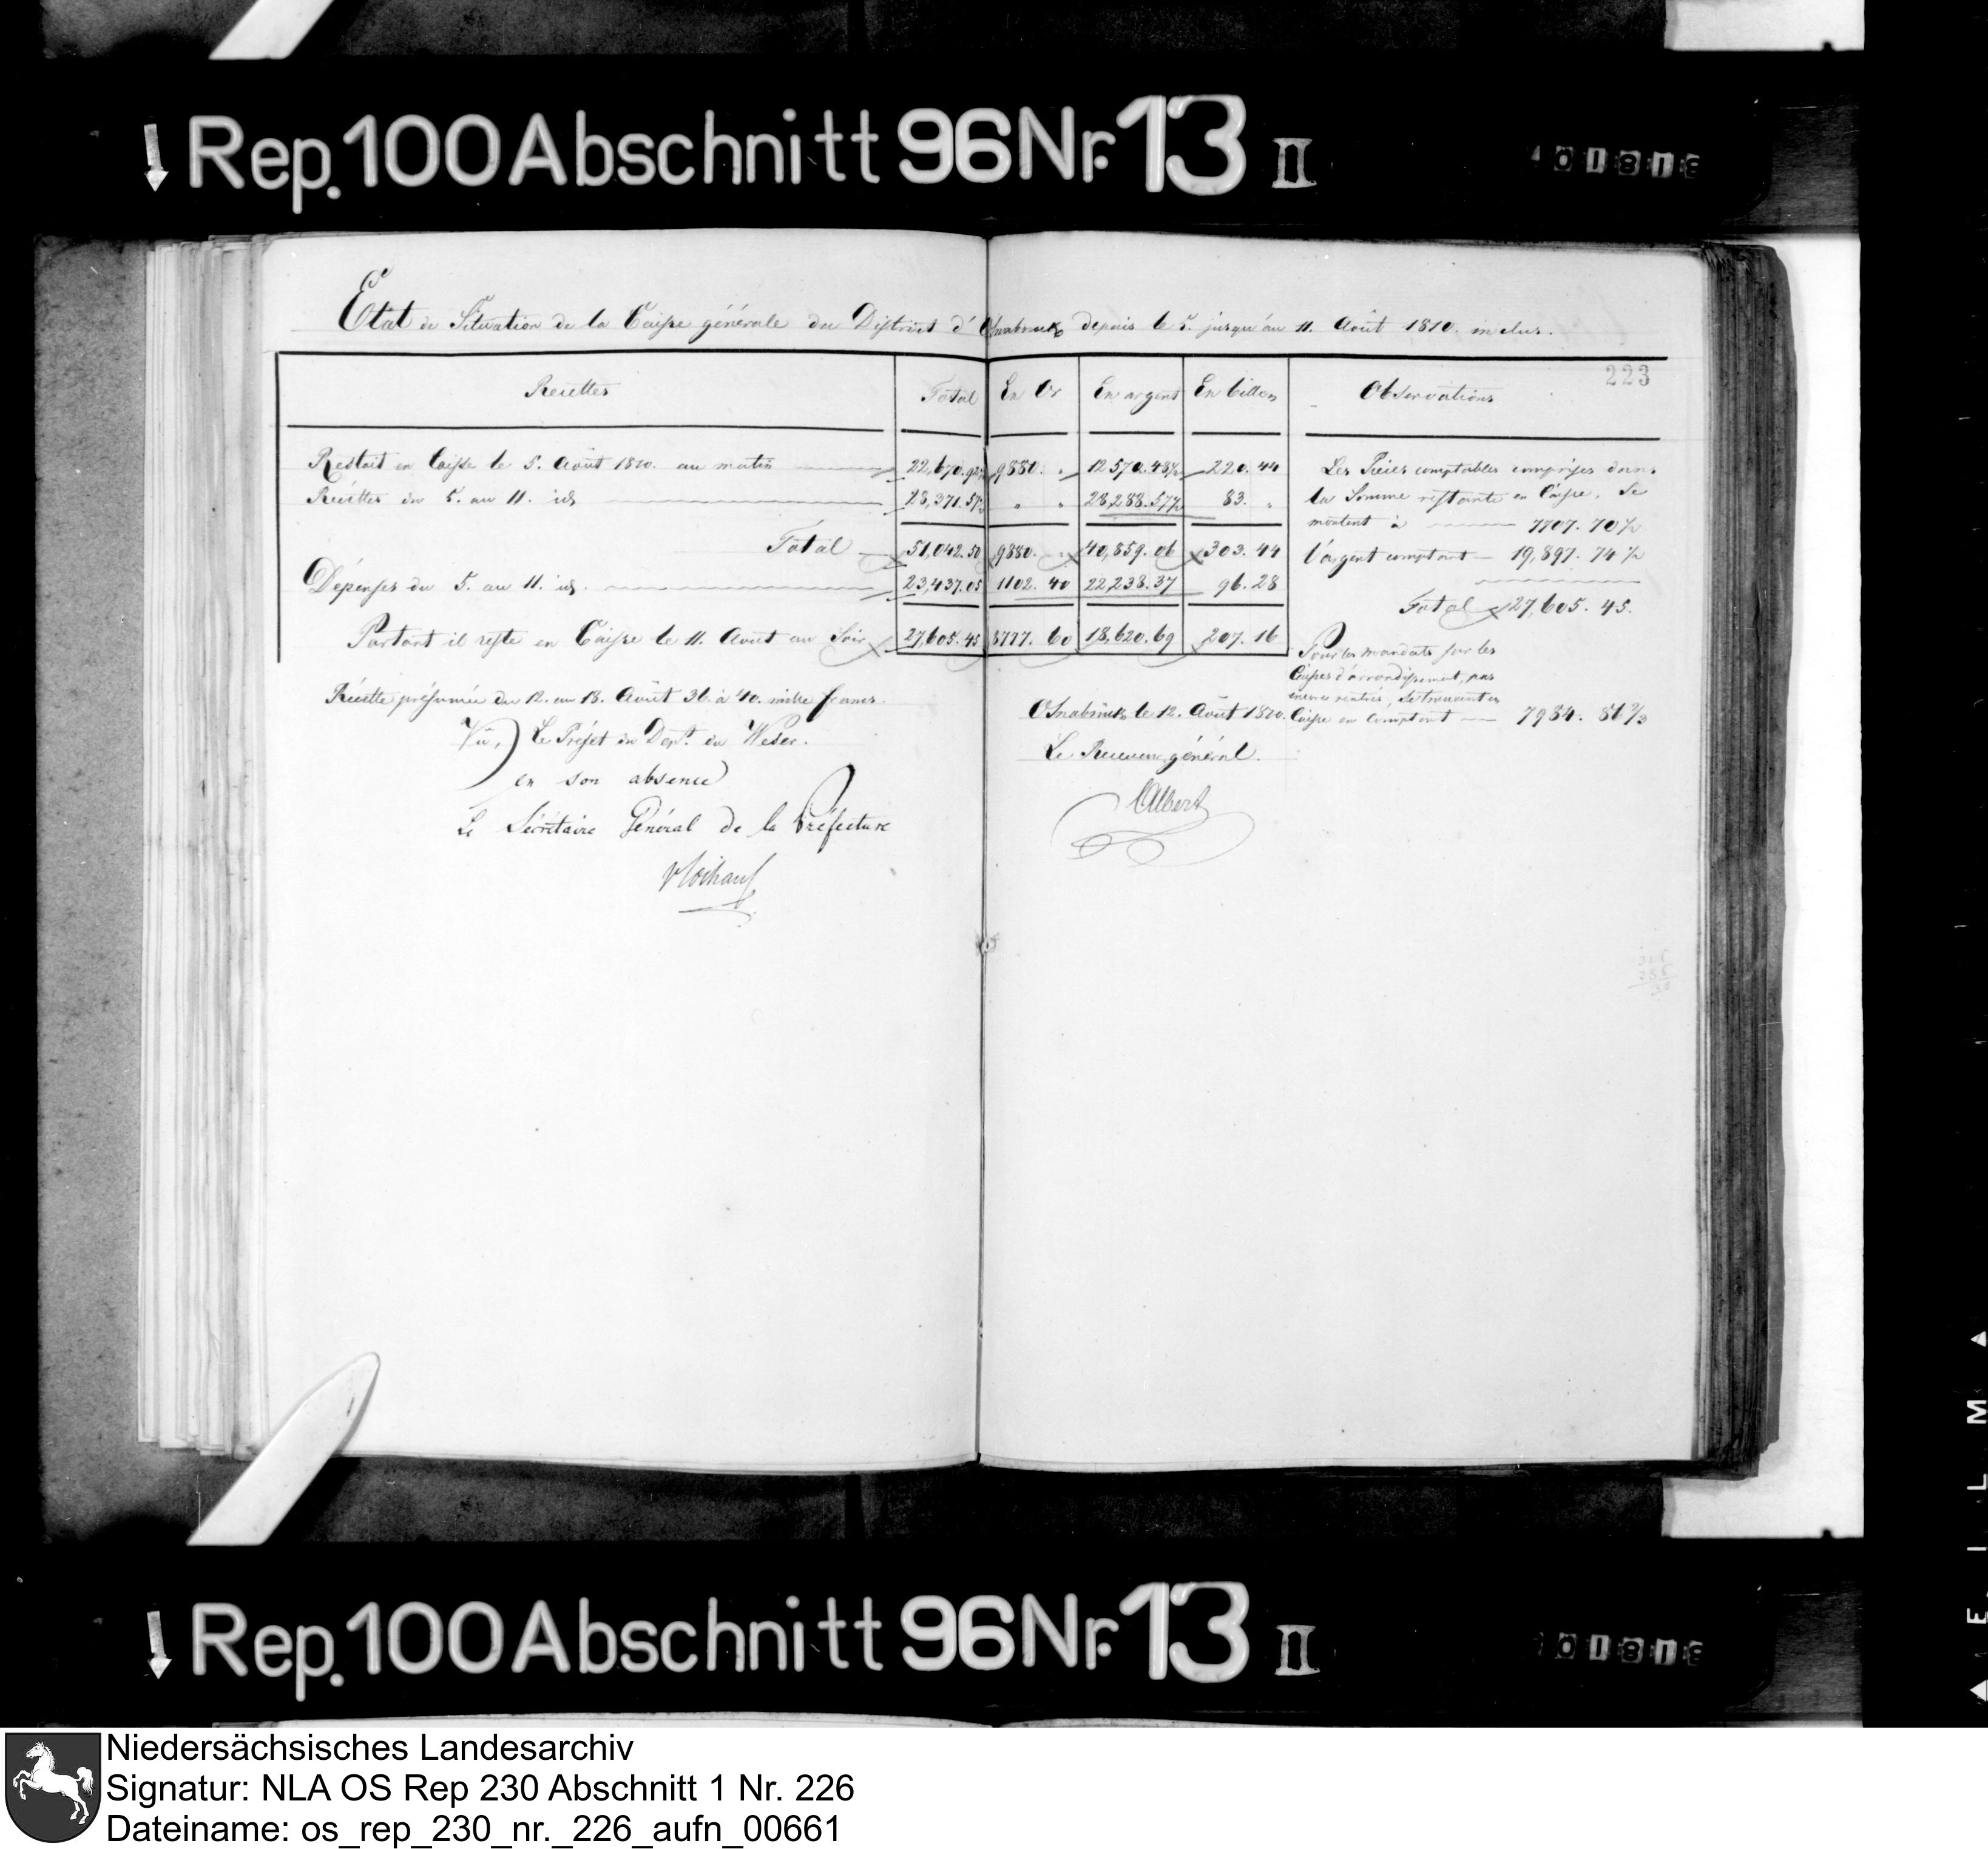 Rep. 100 Abschnitt 96 Nr. 13 II
Etat de Situation de la Caisse générale du District d'Osnabruck depuis le 5. jusqu'au 11. Août 1810. inclus.
223
Recettes Total En Or En argent En billon Observations
Restait en Caisse le 5. Août 1810. au matin 22,670. 92½ 9880. " 12570. 48½ 220. 44
Recettes du 5. au 11. id. 28,371. 57½ " " 28,288. 57½ 83. "
Total 51,042. 50 9880. " 40,859. 06 303. 44
Dépenses du 5. au 11. id. 23,437. 05 1102. 40 22,238. 37 96. 28
Partant il reste en Caisse le 11. Aout au Soir 27,605. 45 8777. 60 18,620. 69 207. 16
Les Pièces comptables comprises dans
la Somme restante en Caisse, se
montent à 7707. 70½
l'argent comptant 19,897. 74½
Total 27,605. 45.
Pour les mandats sur les
Caisses d'arrondissement, pas
encore rentrés, se trouvent en
Caisse en Comptant 7984. 86⅔
Récette présumée du 12. au 18. Août 36. à 40. mille francs.
Vû, Le Préfet du Dept. du Weser.
en son absence
Le Sécrétaire Général de la Préfecture
Osnabrück le 12. Août 1810.
Le Receveur général.
Albert
Rep. 100 Abschnitt 96 Nr. 13 II
Niedersächsisches Landesarchiv
Signatur: NLA OS Rep 230 Abschnitt 1 Nr. 226
Dateiname: os_rep_230_nr._226_aufn_00661